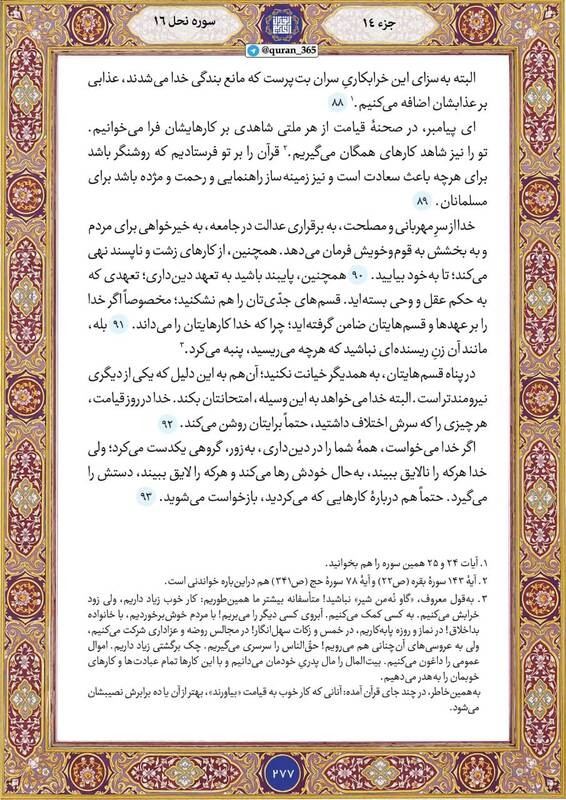 جزء ۱۴
سوره نحل ۱۶
@quran_365
البته به سزای این خرابکاریِ سران بت‌پرست که مانع بندگی خدا می‌شدند، عذابی
بر عذابشان اضافه می‌کنیم.۱ ۸۸
ای پیامبر، در صحنهٔ قیامت از هر ملتی شاهدی بر کارهایشان فرا می‌خوانیم.
تو را نیز شاهد کارهای همگان می‌گیریم.۲ قرآن را بر تو فرستادیم که روشنگر باشد
برای هرچه باعث سعادت است و نیز زمینه‌ساز راهنمایی و رحمت و مژده باشد برای
مسلمانان. ۸۹
خدا از سرِ مهربانی و مصلحت، به برقراری عدالت در جامعه، به خیرخواهی برای مردم
و به بخشش به قوم‌وخویش فرمان می‌دهد. همچنین، از کارهای زشت و ناپسند نهی
می‌کند؛ تا به‌خود بیایید. ۹۰ همچنین، پایبند باشید به تعهد دین‌داری؛ تعهدی که
به حکم عقل و وحی بسته‌اید. قسم‌های جدّی‌تان را هم نشکنید؛ مخصوصاً اگر خدا
را بر عهدها و قسم‌هایتان ضامن گرفته‌اید؛ چرا که خدا کارهایتان را می‌داند. ۹۱ بله،
مانند آن زنِ ریسنده‌ای نباشید که هرچه می‌ریسید، پنبه می‌کرد.۳
در پناه قسم‌هایتان، به همدیگر خیانت نکنید؛ آن‌هم به این دلیل که یکی از دیگری
نیرومندتر است. البته خدا می‌خواهد به این وسیله، امتحانتان بکند. خدا در روز قیامت،
هر چیزی را که سرش اختلاف داشتید، حتماً برایتان روشن می‌کند. ۹۲
اگر خدا می‌خواست، همهٔ شما را در دین‌داری، به‌زور، گروهی یکدست می‌کرد؛ ولی
خدا هرکه را نالایق ببیند، به‌حال خودش رها می‌کند و هرکه را لایق ببیند، دستش را
می‌گیرد. حتماً هم دربارهٔ کارهایی که می‌کردید، بازخواست می‌شوید. ۹۳
۱. آیات ۲۴ و ۲۵ همین سوره را هم بخوانید.
۲. آیهٔ ۱۴۳ سورهٔ بقره (ص۲۲) و آیهٔ ۷۸ سورهٔ حج (ص۳۴۱) هم دراین‌باره خواندنی است.
۳. به‌قول معروف، «گاو نُه‌من شیر» نباشید! متأسفانه بیشتر ما همین‌طوریم: کار خوب زیاد داریم، ولی زود
خرابش می‌کنیم. به کسی کمک می‌کنیم. آبروی کسی دیگر را می‌بریم! با مردم خوش‌برخوردیم، با خانواده
بداخلاق! در نماز و روزه پابه‌کاریم، در خمس و زکات سهل‌انگار! در مجالس روضه و عزاداری شرکت می‌کنیم،
ولی به عروسی‌های آن‌چنانی هم می‌رویم! حقّ‌الناس را سرسری می‌گیریم. چک برگشتی زیاد داریم. اموال
عمومی را داغون می‌کنیم. بیت‌المال را مال پدریِ خودمان می‌دانیم و با این کارها تمام عبادت‌ها و کارهای
خوبمان را به‌هدر می‌دهیم.
به‌همین‌خاطر، در چند جای قرآن آمده: آنانی که کار خوب به قیامت «بیاورند»، بهتر از آن یا ده برابرش نصیبشان
می‌شود.
۲۷۷